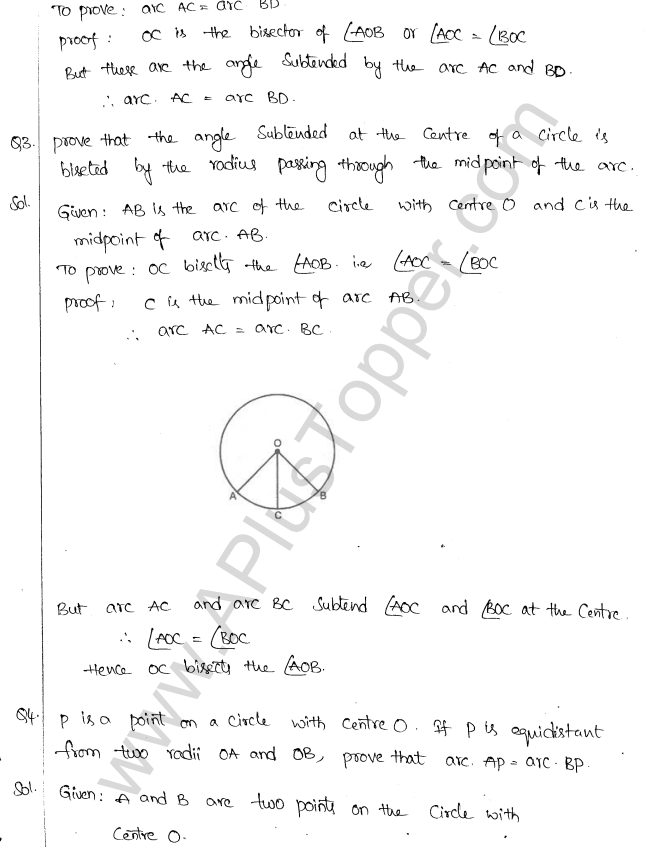 To prove: arc AC = arc BD
proof: OC is the bisector of ∠AOB or ∠AOC = ∠BOC
But these are the angle Subtended by the arc AC and BD.
∴ arc. AC = arc BD.
Q3. prove that the angle Subtended at the Centre of a circle is
biseted by the radius passing through the midpoint of the arc.
Sol. Given: AB is the arc of the circle with centre O and C is the
midpoint of arc. AB.
To prove: OC bisects the ∠AOB. i.e ∠AOC = ∠BOC
proof: C is the midpoint of arc AB.
∴ arc AC = arc. BC.
O
A B
C
But arc AC and arc BC Subtend ∠AOC and ∠BOC at the Centre.
∴ ∠AOC = ∠BOC
Hence OC bisects the ∠AOB.
Q4. P is a point on a circle with Centre O. If P is equidistant
from two radii OA and OB, prove that arc. AP = arc. BP.
Sol. Given: A and B are two points on the Circle with
Centre O.
www.APlusTopper.com